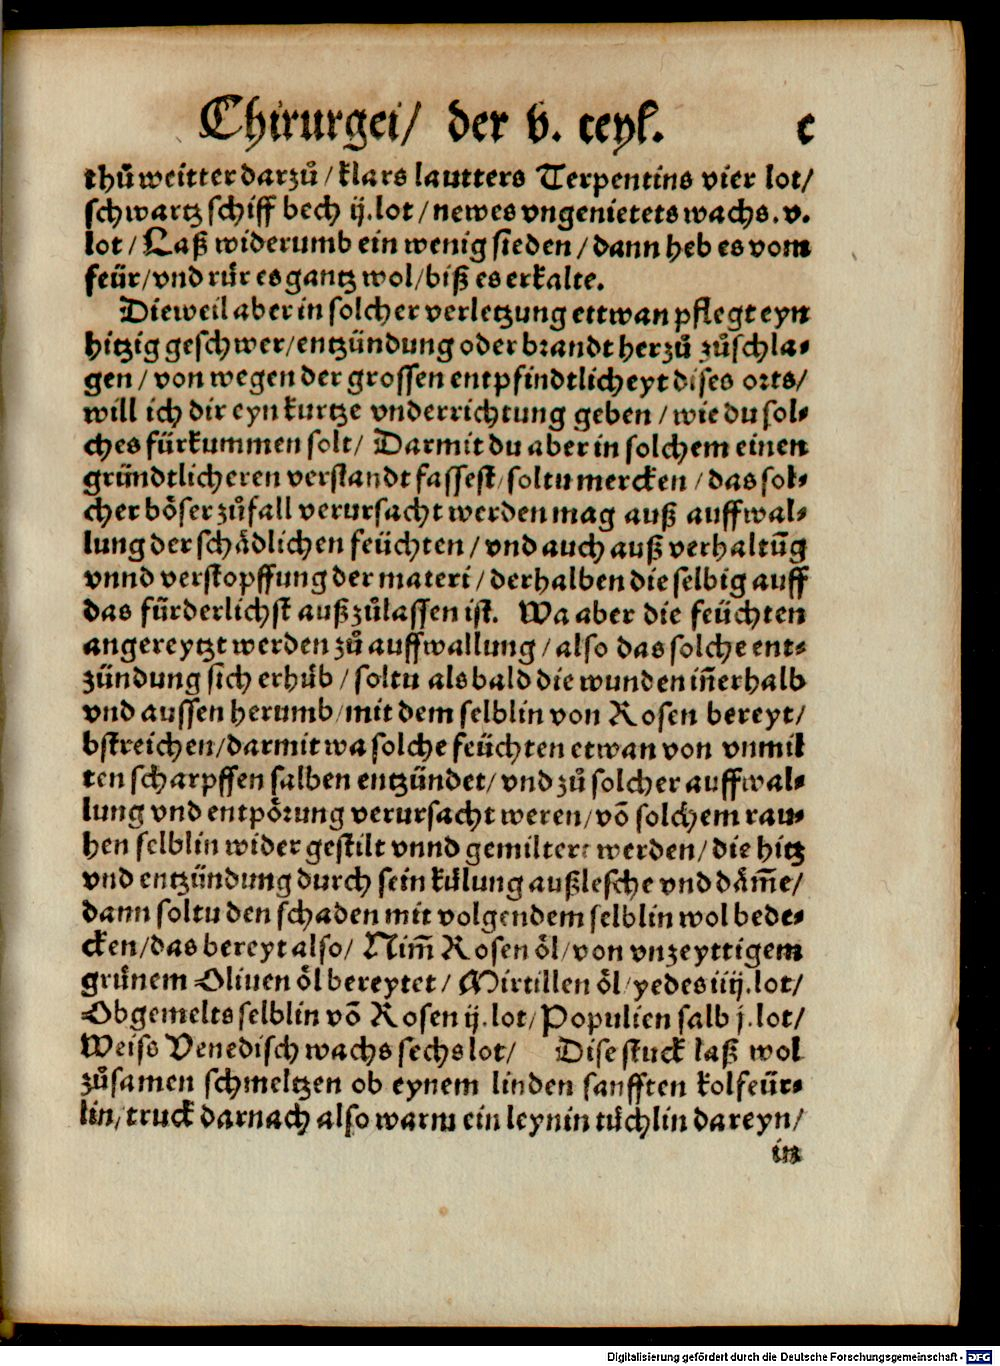 Chirurgei/ der v. teyl. c
thů weitter darzů / klars lautters Terpentins vier lot/
schwartz schiff bech ij. lot / newes vngenietets wachs. v.
lot / Laß widerumb ein wenig sieden / dann heb es vom
feür/vnd růr es gantz wol/biß es erkalte.
Dieweil aber in solcher verletzung ettwan pflegt eyn
hitzig geschwer/entzündung oder brandt herzů zůschla⸗
gen / von wegen der grossen entpfindtlicheyt dises orts/
will ich dir eyn kurtze vnderrichtung geben / wie du sol⸗
ches fürkummen solt/ Darmit du aber in solchem einen
gründtlicheren verstandt fassest/ soltu mercken / das sol⸗
cher böser zůfall verursacht werden mag auß auffwal⸗
lung der schädlichen feüchten / vnd auch auß verhaltũg
vnnd verstopffung der materi / derhalben die selbig auff
das fürderlichst außzůlassen ist. Wa aber die feüchten
angereytzt werden zů auffwallung / also das solche ent⸗
zündung sich erhůb / soltu als bald die wunden iñerhalb
vnd aussen herumb/mit dem selblin von Rosen bereyt/
bstreichen/darmit wa solche feüchten etwan von vnmil
ten scharpffen salben entzündet/ vnd zů solcher auffwal⸗
lung vnd entpörung verursacht weren/ võ solchem rau⸗
hen selblin wider gestilt vnnd gemiltert werden/ die hitz
vnd entzündung durch sein kůlung außlesche vnd däm̃e/
dann soltu den schaden mit volgendem selblin wol bede⸗
cken/das bereyt also/ Nim̃ Rosen öl/von vnzeyttigem
grůnem Oliuen öl bereytet / Mirtillen öl/yedes iiij. lot/
Obgemelts selblin võ Rosen ij. lot/Populien salb j. lot/
Weiss Venedisch wachs sechs lot/ Dise stuck laß wol
zůsamen schmeltzen ob eynem linden sanfften kolfeür⸗
lin/ truck darnach also warm ein leynin tůchlin dareyn/
in
Digitalisierung gefördert durch die Deutsche Forschungsgemeinschaft - DFG